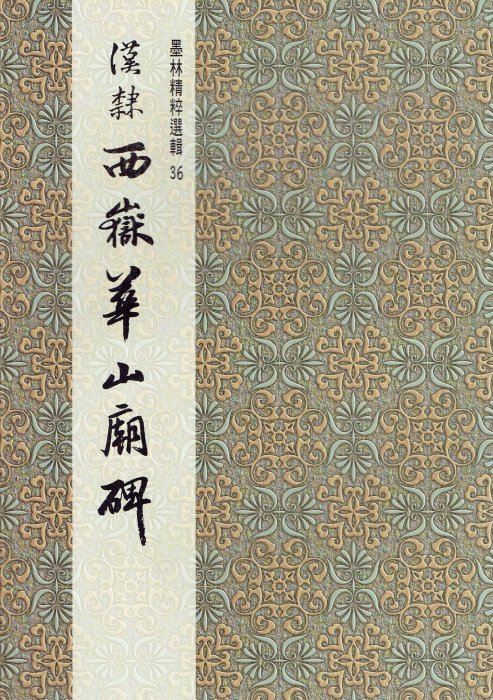 墨林精粹選輯 36
漢隸 西嶽華山廟碑